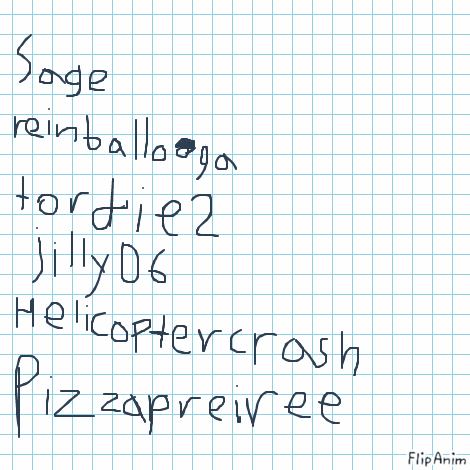 Sage
reinballooga
tordie2
jilly06
Helicoptercrash
Pizzapreivree
FlipAnim